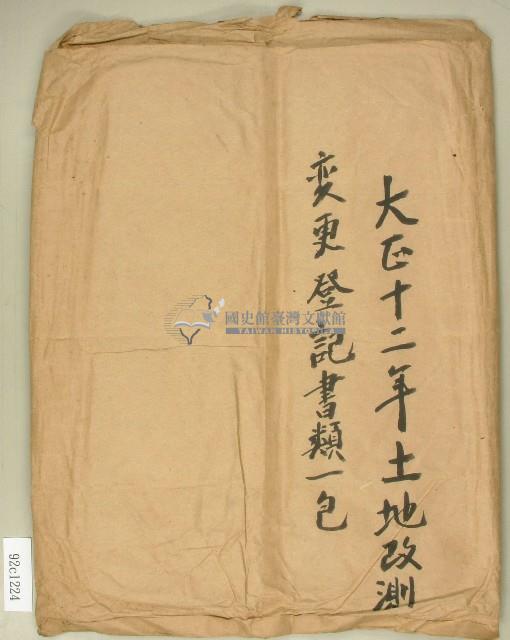 大正十二年土地改測
変更登記書類一包
國史館臺灣文獻館
TAIWAN HISTORICA
92c1224